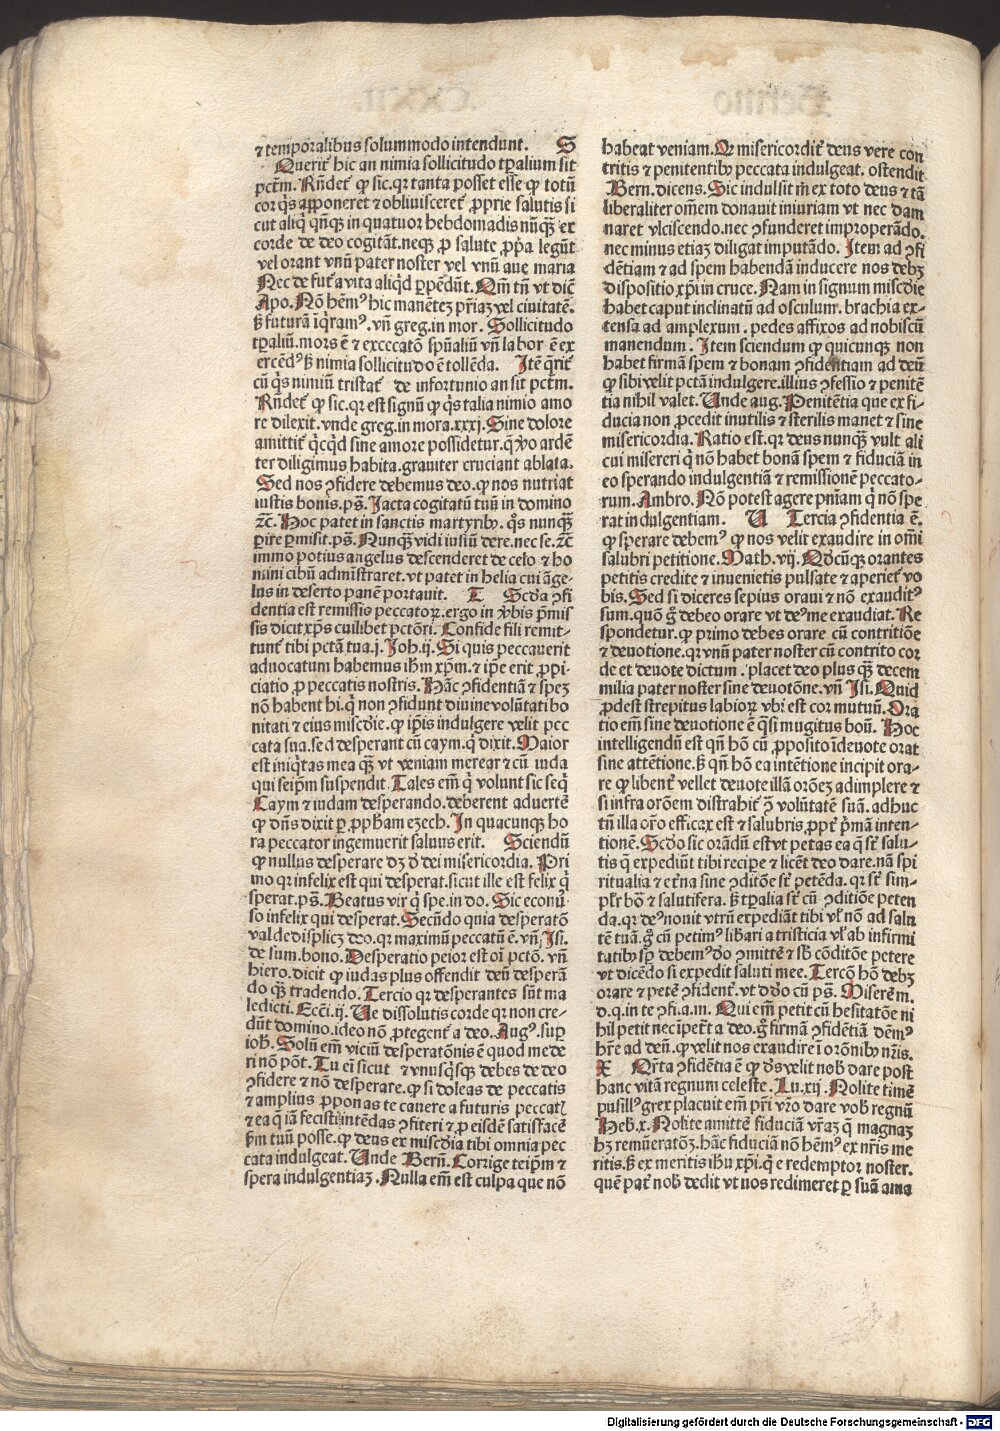 ⁊ temporalibus solummodo intendunt. S
Querit᷑ hic an nimia sollicitudo tꝑalium sit
pctm̄. Rn̄det᷑ ꝙ sic. qꝛ tanta posset esse ꝙ totū
cor qͥs apponeret ⁊ obliuisceret᷑ ꝓprie salutis si
cut aliqͥ qn̄qꝫ in quatuor hebdomadis nūqꝫ̄ ex
corde de deo cogitāt. neqꝫ ꝓ salute ꝓpͥa legūt
vel orant vnū pater noster vel vnū aue maria
Nec de fut᷑a vita aliqͥd ꝑpēdūt. Qm̄ tn̄ vt dic̄
Apo. Nō hēmꝰ hic manētez pr̄iaz vel ciuitatē.
sꝫ futurā īqͥramꝰ. vn̄ greg. in mor. Sollicitudo
tꝑaliū. mors ē ⁊ excecatō spūaliū vn̄ labor ē ex
ercēdꝰ sꝫ nimia sollicitudo ē tollēda. Itē qrit᷑
cū qͥs nimiū tristat᷑ de infortunio an sit pctm̄.
Rn̄det᷑ ꝙ sic. qꝛ est signū ꝙ qͥs talia nimio amo
re dilexit. vnde greg. in mora. xxxj. Sine dolore
amittit᷑ qͥcqͥd sine amore possidetur. q̄ v̊o ardē
ter diligimus habita. grauiter cruciant ablata.
Sed nos ꝯfidere debemus deo. ꝙ nos nutriat
iustis bonis. ps̄. Iacta cogitatū tuū in domino
⁊c̄. Hoc patet in sanctis martyribꝫ. qͦs nunqꝫ̄
ꝑire ꝑmisit. ps̄. Nunqꝫ̄ vidi iustū dere. nec se. ⁊c̄
immo potius angelus descenderet de celo ⁊ ho
mini cibū admistraret. vt patet in helia cui āge
lus in deserto panē portauit. T Scd̄a ꝯfi
dentia est remissio peccatoꝝ. ergo in v̄bis p̄mis
sis dicit xp̄s cuilibet pctōri. Confide fili remit⸗
tunt᷑ tibi pctā tua. j. Joh. ij. Si quis peccauerit
aduocatum habemus ih̄m xp̄m. ⁊ ip̄e erit ꝓpi
ciatio ꝓ peccatis nostris. Hāc ꝯfidentiā ⁊ spez
nō habent hi. qͥ non ꝯfidunt diuine volūtati bo
nitati ⁊ eius mīscd̄ie. ꝙ ip̄is indulgere velit pec
cata sua. sed desperant cū caym. qͥ dixit. Maior
est iniqͥtas mea qꝫ̄ vt veniam merear ⁊ cū iuda
qui seip̄m suspendit. Tales em̄ qͥ volunt sic seqͥ
Caym ⁊ iudam desperando. deberent aduertē
ꝙ dn̄s dixit ꝑ ꝓph̄am ezech. In quacunqꝫ ho
ra peccator ingemuerit saluus erit. Sciendū
ꝙ nullus desperare dꝫ ď dei misericordia. Pri
mo qꝛ infelix est qui desperat. sicut ille est felix qͥ
sperat. ps̄. Beatus vir qͥ spe. in do. Sic econū⸗
so infelix qui desperat. Secūdo quia desperatō
valde displicꝫ deo. qꝛ maximū peccatū ē. vn̄ Isi.
de sum. bono. Desperatio peior est oī pctō. vn̄
hiero. dicit ꝙ iudas plus offendit deū desperā
do qꝫ̄ tradendo. Tercio qꝛ desperantes sūt ma
ledicti. Ecci. ij. Ve dissolutis corde qꝛ non cre⸗
dūt domino. ideo nō ꝓtegent᷑ a deo. Augꝰ. suꝑ
ioh̄. Solū em̄ viciū desperatōnis ē quod mede
ri nō pōt. Tu eī sicut ⁊ vnusqͥsqꝫ debes de deo
ꝯfidere ⁊ nō desperare. ꝙ si doleas de peccatis
⁊ amplius ꝓponas te cauere a futuris peccat̄
⁊ ea q̄ iā fecisti intēdas ꝯfiteri ⁊ ꝓ eisdē satisfacē
ẜm tuū posse. ꝙ deus ex mīscd̄ia tibi omnia pec
cata indulgeat. Unde Bern̄. Corrige teip̄m ⁊
spera indulgentiaꝫ. Nulla em̄ est culpa que nō
habeat veniam. Qꝙ misericordit᷑ deus vere con
tritis ⁊ penitentibꝫ peccata indulgeat. ostendit
Bern. dicens. Sic indulsit m̄ ex toto deus ⁊ tā
liberaliter om̄em donauit iniuriam vt nec dam
naret vlciscendo. nec ꝯfunderet improperādo.
nec minus etiaꝫ diligat imputādo. Item ad ꝯfi
dētiam ⁊ ad spem habendā inducere nos debꝫ
dispositio xp̄i in cruce. Nam in signum mīscd̄ie
habet caput inclinatū ad osculum. brachia ex⸗
tensa ad amplexum. pedes affixos ad nobiscū
manendum. Item sciendum ꝙ quicunqꝫ non
habet firmā spem ⁊ bonam ꝯfidentiam ad deū
ꝙ sibi velit pctā indulgere. illius ꝯfessio ⁊ penitē
tia nihil valet. Unde aug. Penitētia que ex fi⸗
ducia non ꝓcedit inutilis ⁊ sterilis manet ⁊ sine
misericordia. Ratio est. qꝛ deus nunqꝫ̄ vult ali
cui misereri qͥ nō habet bonā spem ⁊ fiduciā in
eo sperando indulgentiā ⁊ remissionē peccato⸗
rum. Ambro. Nō potest agere pn̄iam qͥ nō spe
rat indulgentiam. U Tercia ꝯfidentia ē.
ꝙ sperare debemꝰ ꝙ nos velit exaudire in om̄i
salubri petitione. Math. vij. Qd̄cūqꝫ orantes
petitis credite ⁊ inuenietis pulsate ⁊ aperiet᷑ vo
bis. Sed si diceres sepius oraui ⁊ nō exauditꝰ
sum. quō g̊ debeo orare vt deꝰ me exaudiat. Re
spondetur. ꝙ primo debes orare cū contritiōe
⁊ deuotione. qꝛ vnū pater noster cū contrito cor
de et deuote dictum. placet deo plus qꝫ̄ decem
milia pater noster sine deuotōne. vn̄ Isi. Quid
ꝓdest strepitus labioꝝ vbi est cor mutuū. Ora
tio em̄ sine deuotione ē qͣsi mugitus boū. Hoc
intelligendū est qn̄ hō cū ꝓposito īdeuote orat
sine attētione. sꝫ qn̄ hō ea intētione incipit ora⸗
re ꝙ libent᷑ vellet deuote illā orōez adimplere ⁊
si infra orōem distrahit᷑ ꝯ̄ volūtatē suā. adhuc
tn̄ illa oro efficax est ⁊ salubris. ꝓpt᷑ p̄mā inten⸗
tionē. Scd̄o sic orādū est vt petas ea q̄ st᷑ salu⸗
tis q̄ expediūt tibi recipe ⁊ licēt deo dare. nā spi
ritualia ⁊ et᷑na sine ꝯditōe st᷑ petēda. qꝛ st᷑ sim⸗
pl᷑r bō ⁊ salutifera. sꝫ tꝑalia st᷑ cū ꝯditiōe peten
da. qꝛ deꝰ nouit vtrū expediāt tibi vl᷑ nō ad salu
tē tuā. g̊ cū petimꝰ lib̄ari a tristicia vl᷑ ab infirmi
tatibꝫ sp̄ debemꝰ d̊o ꝯmittē ⁊ sb̄ cōditōe petere
vt dicēdo si expedit saluti mee. Tercō hō debꝫ
orare ⁊ petē ꝯfident᷑. vt dd̊o cū ps̄. Miserē m.
d. q. in te ꝯfi. a. m. Qui em̄ petit cū hesitatōe ni
hil petit nec īpet᷑t a deo. g̊ firmā ꝯfidētiā dēmꝰ
hr̄e ad deū. ꝙ velit nos exaudire ī orōnibꝫ nr̄is.
X Qr̄ta ꝯfidētia ē ꝙ ds̄ velit nob̄ dare post
hanc vitā regnum celeste. Lu. xij. Nolite timē
pusillꝰ grex placuit em̄ pr̄i vr̄o dare vob̄ regnū
Heb. x. Nolite amittē fiduciā vr̄aꝫ q̄ magnaꝫ
hꝫ remūeratōꝫ. hāc fiduciā nō hēmꝰ ex nr̄is me
ritis. sꝫ ex meritis ih̄u xp̄i. qͥ e redemptor noster.
quē pat᷑ nob̄ dedit vt nos redimeret ꝑ suā ama
Digitalisierung gefördert durch die Deutsche Forschungsgemeinschaft - DFG